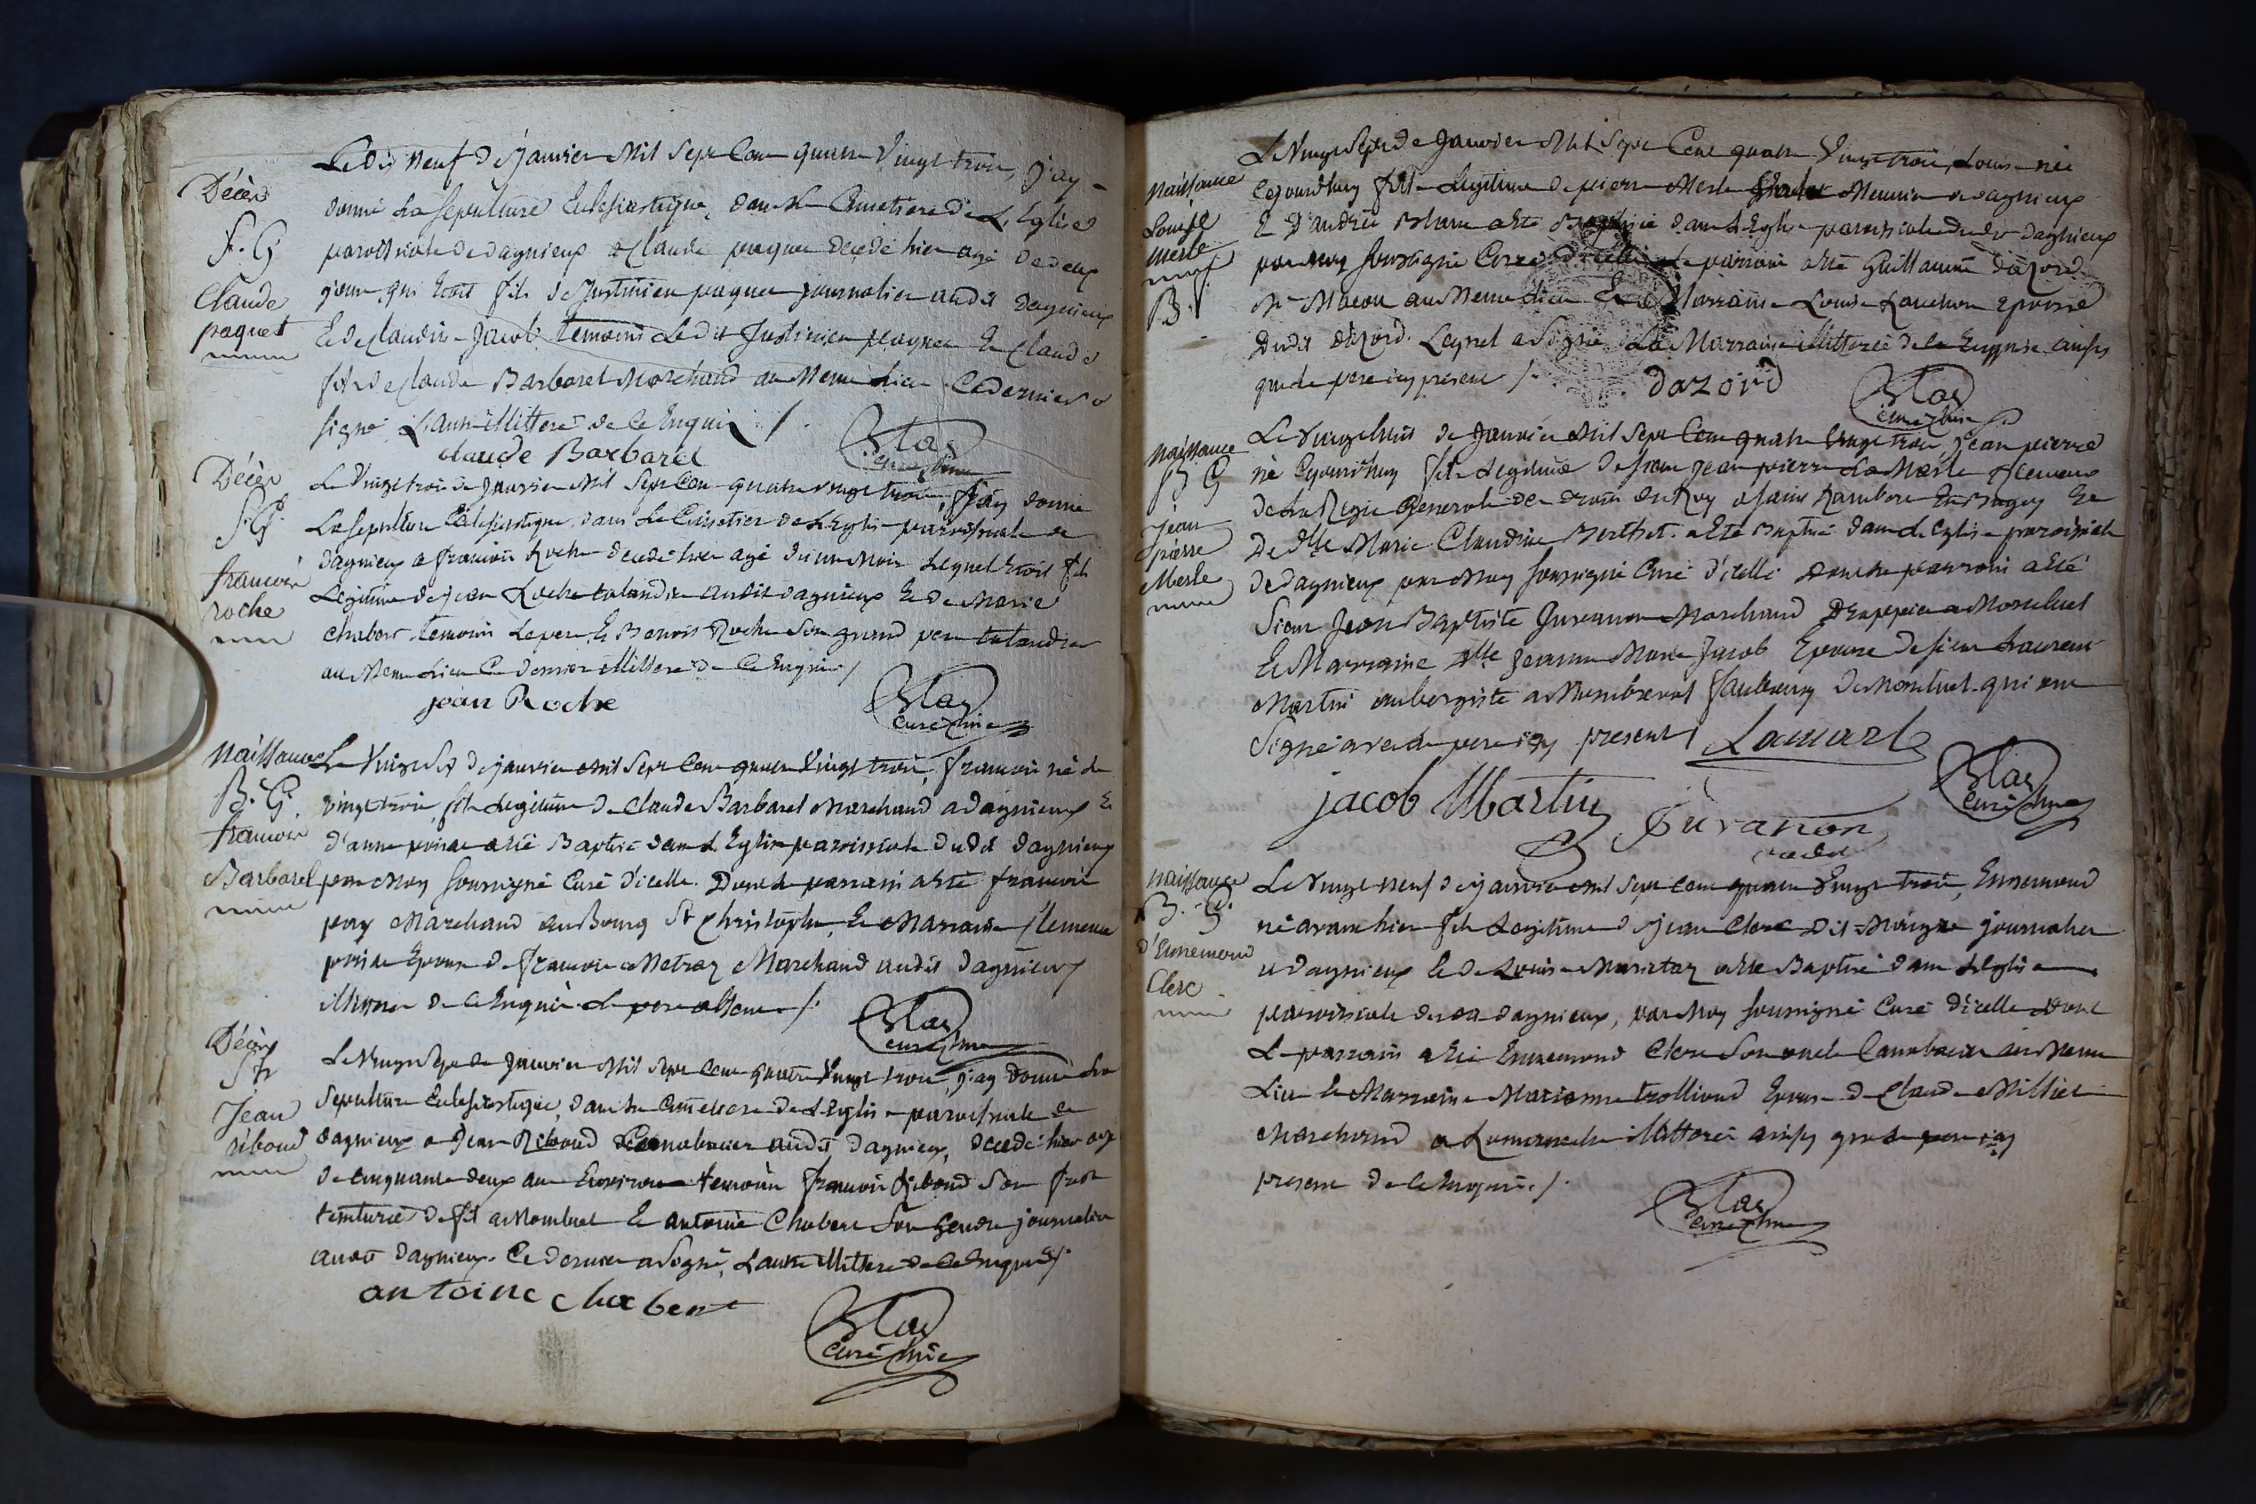 Décès
S. G.
Claude
paquet
Le dix neuf de Janvier Mil Sept Cent quatre Vingt trois, J'ay
donné La Sepulture Eclesiastique, dans Le Cimetiere de L'Eglise
paroissiale de dagnieux a Claude paquet decedé hier agé de deux
jours qui Etoit fils de Justinien paquet journalier audit dagnieux
Et de Claudine Jacob temoins Ledit Justinien paquet Et Claude
fils de Claude Barbaret Marchand au Meme Lieu Ce dernier a
signé L'autre illitteré de ce Enquis /.
claude Barbaret
Blas
curé
Décès
S. G.
francois
roche
Le Vingt trois de Janvier Mil Sept Cent quatre vingt trois, J'ay donné
La Sepulture Eclesiastique dans Le Cimetier de L'Eglise paroissiale de
dagnieux a francois Roche decedé hier agé d'un Mois Lequel Etoit fils
Legitime de jean Roche audit dagnieux Et de Marie
Chabert temoins Le pere, Et Benoit Roche Son grand pere
au Meme Lieu Ce dernier illitteré de ce Enquis /
jean Roche
Blas
curé
Naissance
B. G.
francois
Barbaret
Le Vingt Six de janvier Mil Sept Cent quatre Vingt trois, francois né le
vingt trois, fils Legitime de Claude Barbaret Marchand a dagnieux Et
d'anne a été Baptisé dans L'Eglise paroissiale dudit dagnieux
par Moy Soussigné Curé d'icelle. Dont Le parrain a été francois
Marchand au Bourg St Christophe, Et Marraine Clemence
Epouse de francois Metras Marchand audit dagnieux
illitteré de ce Enquis Le pere absent /.
Blas
curé
Décès
Jean
riboud
Le Vingt Sept de Janvier Mil Sept Cent quatre Vingt trois, J'ay donné La
Sepulture Eclesiastique, dans Le Cimetiere de L'Eglise paroissiale de
dagnieux a Jean Riboud audit dagnieux, decedé hier agé
de Cinquante deux ans Environ temoins francois Riboud Son frere
a Montluel Et antoine Chabert Son Gendre journalier
audit dagnieux. Ce dernier a Signé, L'autre illitteré de ce Enquis /.
antoine chabert
Blas
curé
Naissance
Louise
Merle
B.
Le Vingt Sept de Janvier Mil Sept Cent quatre Vingt trois, Louise née
Cejourd'huy fille Legitime de pierre Merle Meunier a dagnieux
Et d'andrée a été Baptisée dans L'Eglise paroissiale dudit dagnieux
par Moy Soussigné Curé d'icelle Le parrain a été Guillaume dazord
Me Macon au Meme Lieu Et La Marraine Louise Epouse
Dudit dazord. Lequel a Signé La Marraine illitterée de ce Enquise ainsy
que Le pere icy present /.
dazord
Blas
curé
Naissance
B G
Jean
pierre
Merle
Le Vingt huit de Janvier Mil Sept Cent quatre Vingt trois, Jean pierre
né Cejourd'huy fils Legitime de Sieur Jean pierre
de La Regie Generale des droits du Roy a Saint Rambert En Bugey Et
De dlle Marie Claudine a été Baptisé dans L'Eglise paroissiale
de dagnieux par Moy Soussigné Curé d'icelle dont Le parrain a été
Sieur Jean Baptiste Juvanon Marchand Drappier a Montluel
Et Marraine dlle Jeanne Marie Jacob Epouse de Sieur Laurent
Martin aubergiste a faubourg de Montluel qui ont
Signé avec Le pere icy present /
jacob Martin
Juvanon
Blas
curé
Naissance
B. G.
d'Ennemond
Clerc
Le Vingt neuf de janvier Mil Sept Cent quatre Vingt trois, Ennemond
né avant hier fils Legitime de jean Clerc dit journalier
a dagnieux Et de Louise a été Baptisé dans L'Eglise
paroissiale dudit dagnieux, par Moy Soussigné Curé d'icelle Dont
Le parrain a été Ennemond Clerc Son oncle au Meme
Lieu Et Marraine Marianne trolliond Epouse de Claude Milliet
Marchand a illitterée ainsy que Le pere icy
present de ce Enquis /.
Blas
curé